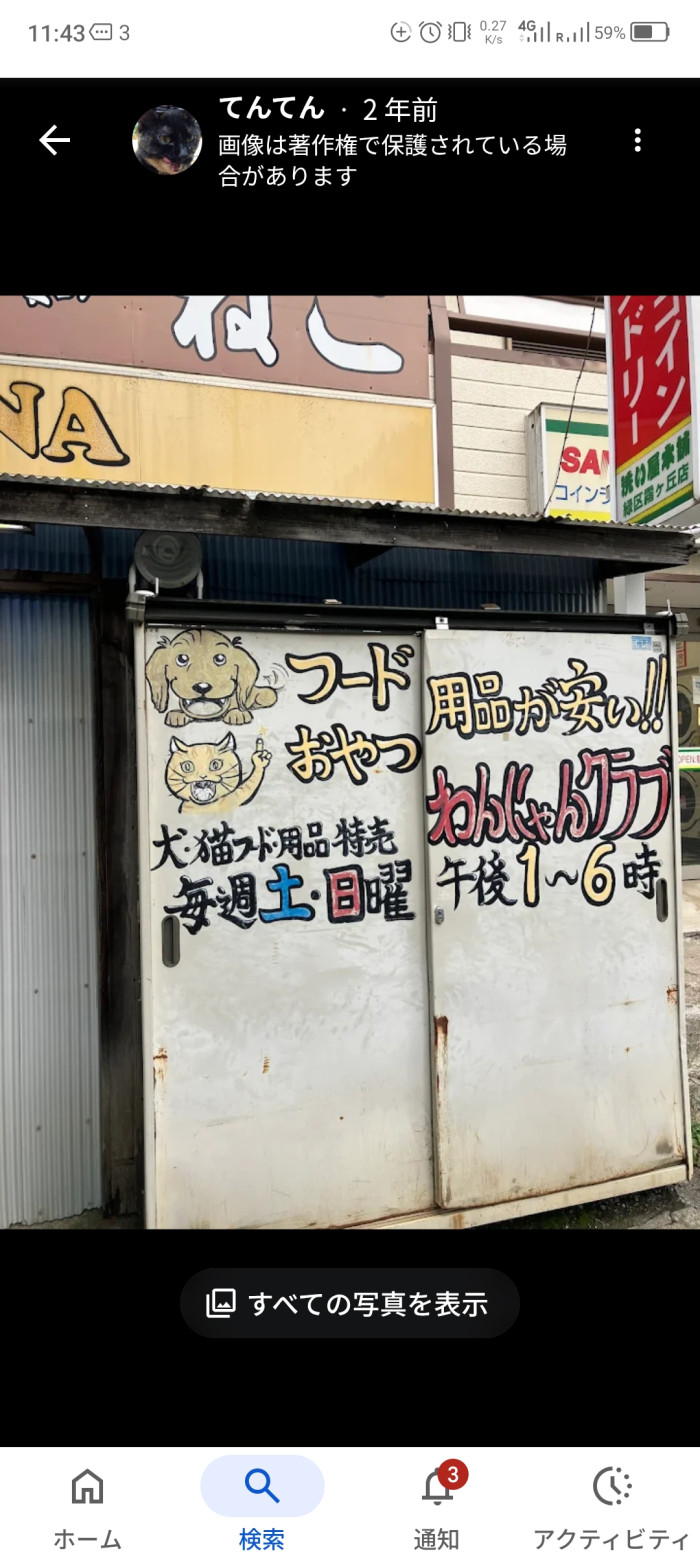 11:43 3 0.27 K/s 4G R 59%
てんてん · 2 年前
画像は著作権で保護されている場
合があります
ねこ
NA
コイン
ドリー
洗い屋本舗
緑区霧ヶ丘店
SAN
コイン
フード
おやつ
犬・猫フード・用品・特売
毎週土・日曜
用品が安い!!
わんにゃんクラブ
午後1~6時
OPEN
すべての写真を表示
ホーム
検索
3
通知
アクティビティ